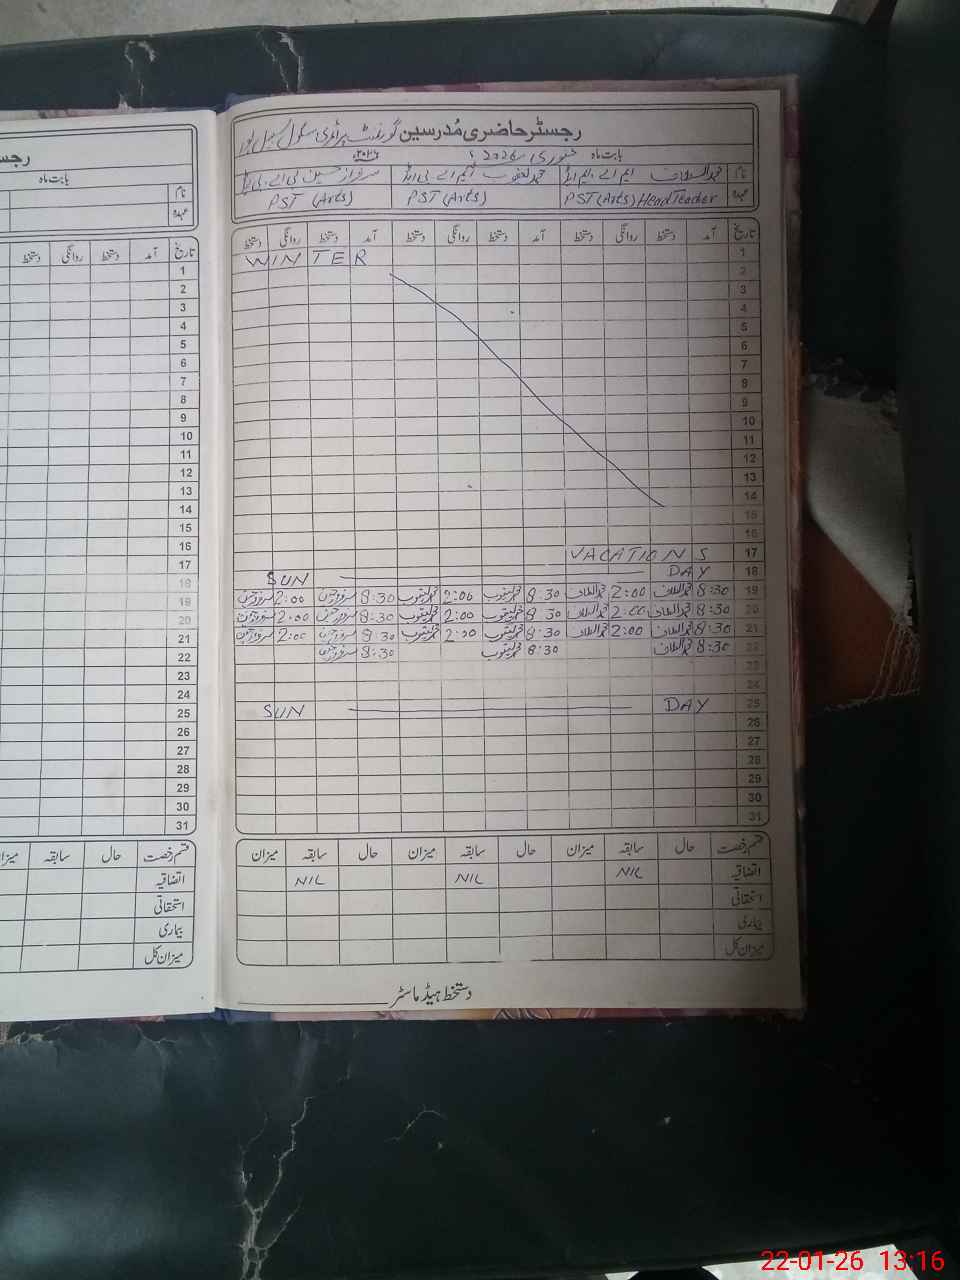 رجسٹر حاضری مُدرسین گورنمنٹ پرائمری سکول
بابت ماہ جنوری 2026ء
نام محمد الطاف ایم اے، ایم ایڈ محمد یعقوب ایم اے، بی ایڈ سرفراز حسین بی اے، بی ایڈ
عہدہ PST (Arts) Head Teacher PST (Arts) PST (Arts)
تاریخ آمد دستخط روانگی دستخط آمد دستخط روانگی دستخط آمد دستخط روانگی دستخط
1 WINTER
2
3
4
5
6
7
8
9
10
11
12
13
14
15
16
17 VACATIONS
18 SUN DAY
19 8:30 محمد الطاف 2:00 محمد الطاف 8:30 محمد یعقوب 2:00 محمد یعقوب 8:30 سرفراز حسین 2:00 سرفراز حسین
20 8:30 محمد الطاف 2:00 محمد الطاف 8:30 محمد یعقوب 2:00 محمد یعقوب 8:30 سرفراز حسین 2:00 سرفراز حسین
21 8:30 محمد الطاف 2:00 محمد الطاف 8:30 محمد یعقوب 2:00 محمد یعقوب 8:30 سرفراز حسین 2:00 سرفراز حسین
22 8:30 محمد الطاف 8:30 محمد یعقوب 8:30 سرفراز حسین
23
24
25 SUN DAY
26
27
28
29
30
31
قسم رخصت حال سابقہ میزان حال سابقہ میزان حال سابقہ میزان
اتفاقیہ NIL NIL NIL
استحقاقی
بیماری
میزان کل
دستخط ہیڈ ماسٹر
بابت ماہ
نام
عہدہ
تاریخ آمد دستخط روانگی دستخط
1
2
3
4
5
6
7
8
9
10
11
12
13
14
15
16
17
18
19
20
21
22
23
24
25
26
27
28
29
30
31
قسم رخصت حال سابقہ
اتفاقیہ
استحقاقی
بیماری
میزان کل
22-01-26 13:16